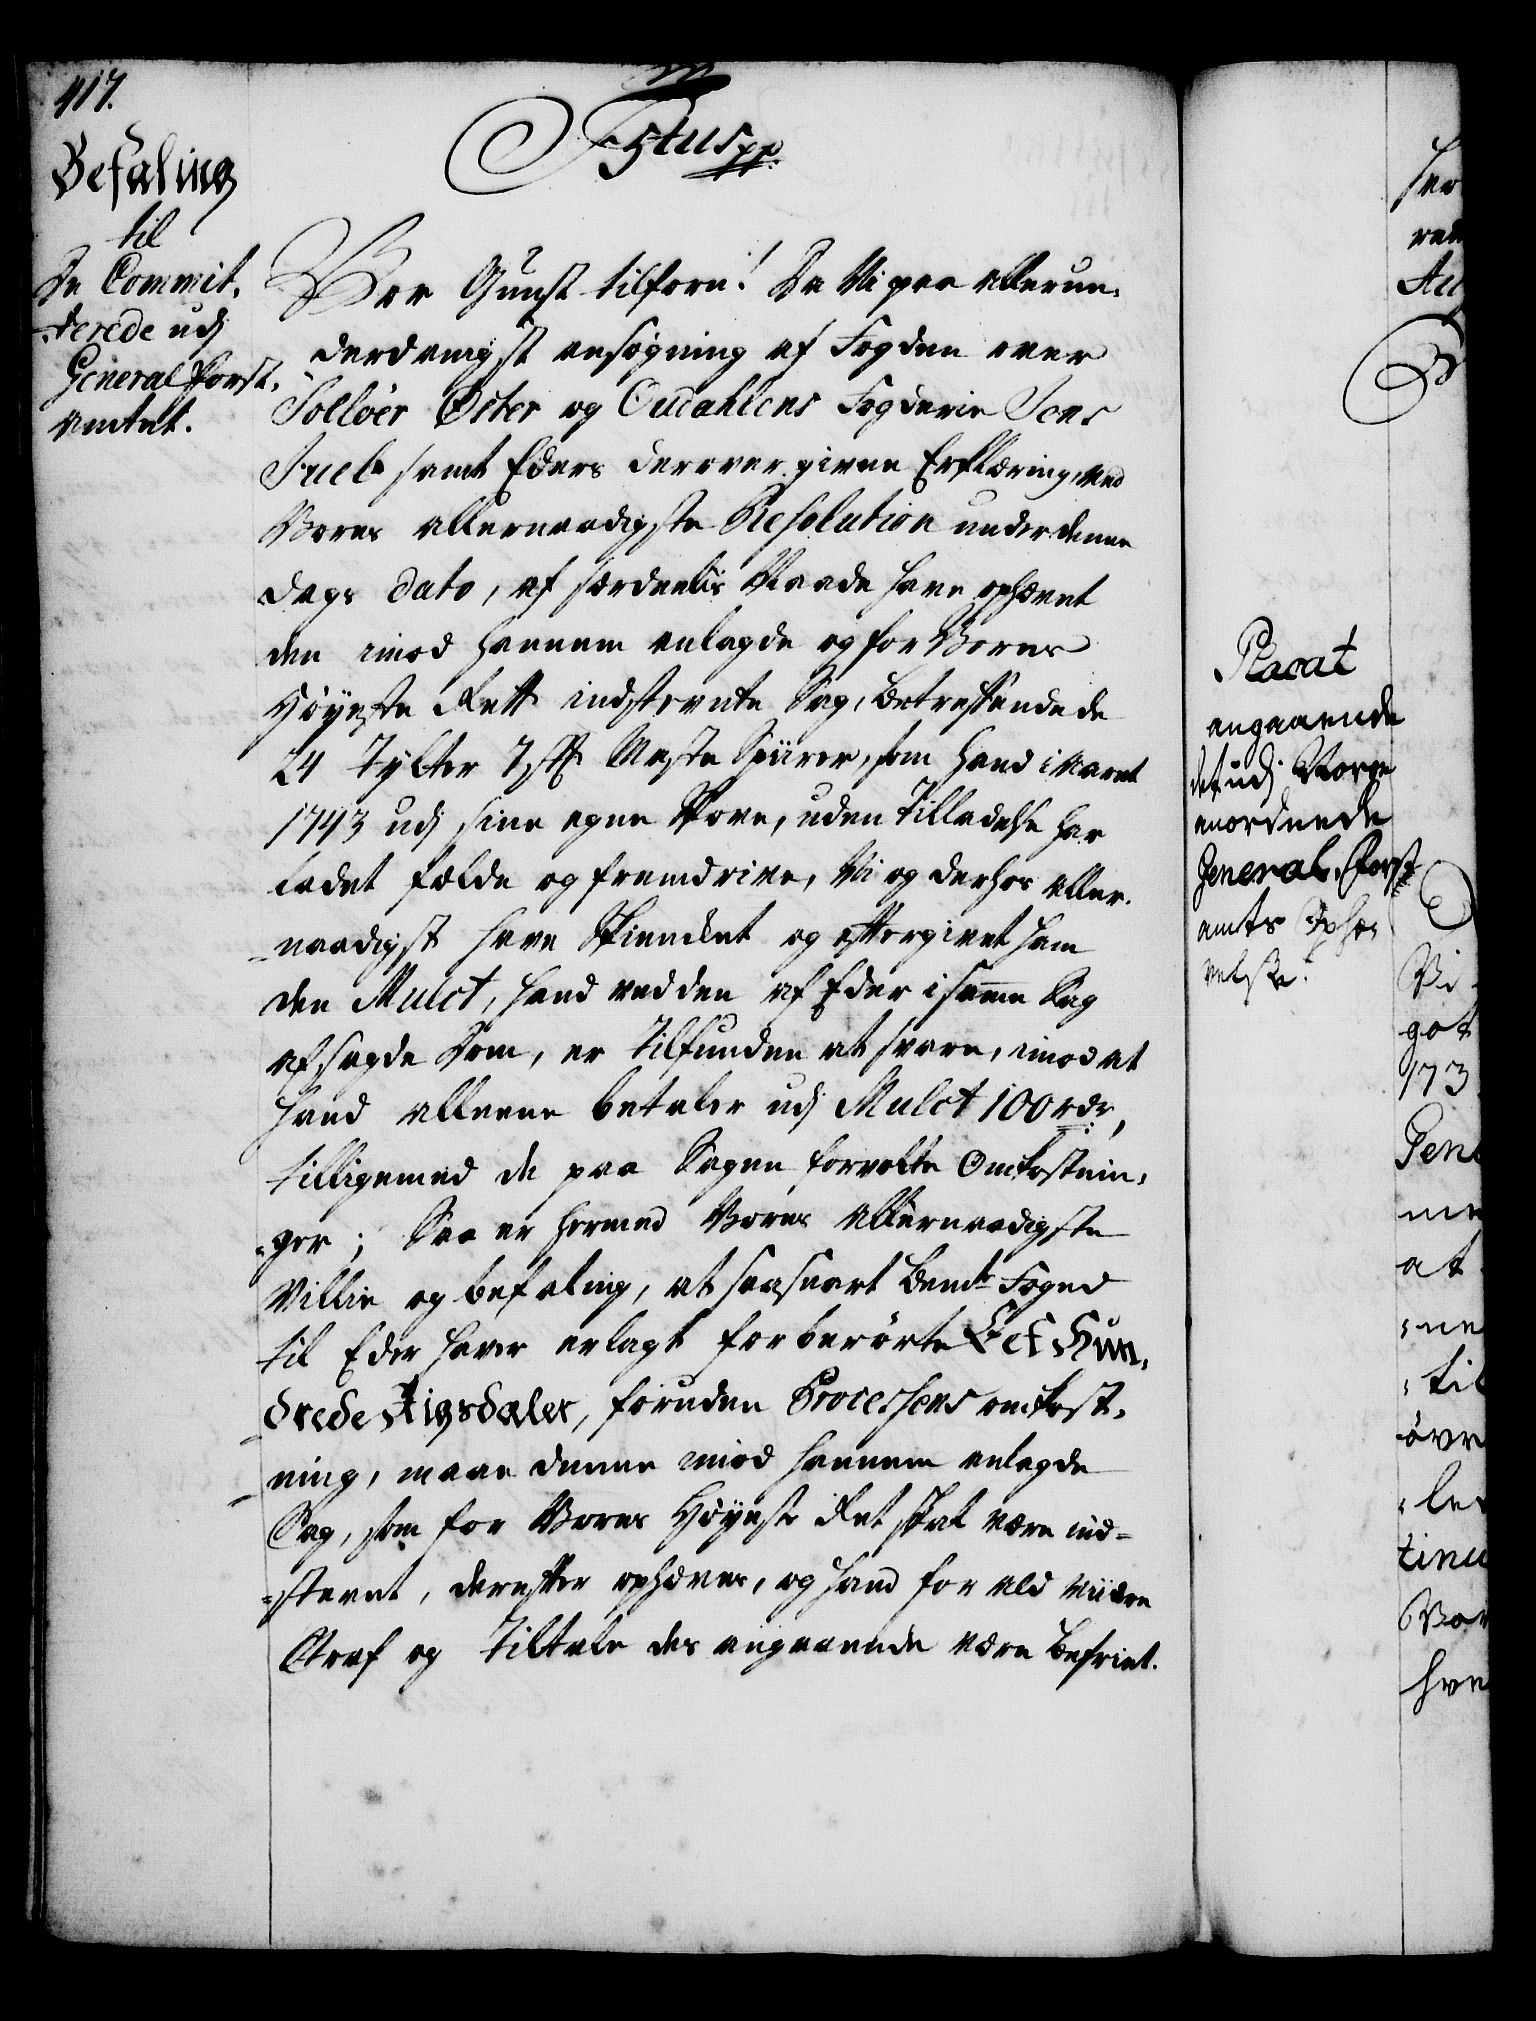 417.
Befaling
til
De Commit-
terede udj
General Forst-
Amtet.
F 5tus pp.
Vor Gunst tilforn! Da Vi paa allerun-
derdanigst ansøgning af Fogden over
Solløer Øster og Oudahlens Fogderie Jens
Juel samt Eders derover givne Erklæring, ved
Vores allernaadigste Resolution under denne
dags dato, af særdeelis Naade have ophævet
den imod hannem anlagde og for Vores
Høyeste Rett indstevnte Sag, betreffende de
24 Tylter Maste Spiirer, som hand i Aaret
1743 udj sine egne Skove, uden Tilladelse har
ladet fælde og fremdrive, Vi og derhos aller-
naadigst have Skiencket og eftergivet ham
den Mulct, hand ved den af Eder i samme Sag
afsagde Dom, er Tilfunden at svare, imod at
hand alleene betaler udj Mulct 100 rdr,
tilligemed de paa Sagen forvoldte Omkostnin-
ger; Saa er hermed Vores Allernaadigste
Villie og befaling, at saasnart bemte Foged
til Eder haver erlagt forberørte Eet Hun-
drede Rigsdaler, foruden Processens omkost-
ning, maae denne imod hannem anlagde
Sag, som for Vores Høyeste Ret skal være ind-
stevnt, derefter ophæves, og hand for ald viidere
Straf og Tiltale des angaaende være befriet.
Placat
angaaende
det udj Norge
anordnede
General-Forst
amts Ophæ-
velse.
Vi
got
173
Pen
me
at
ne
til
øvr
le
tinu
Vor
hve